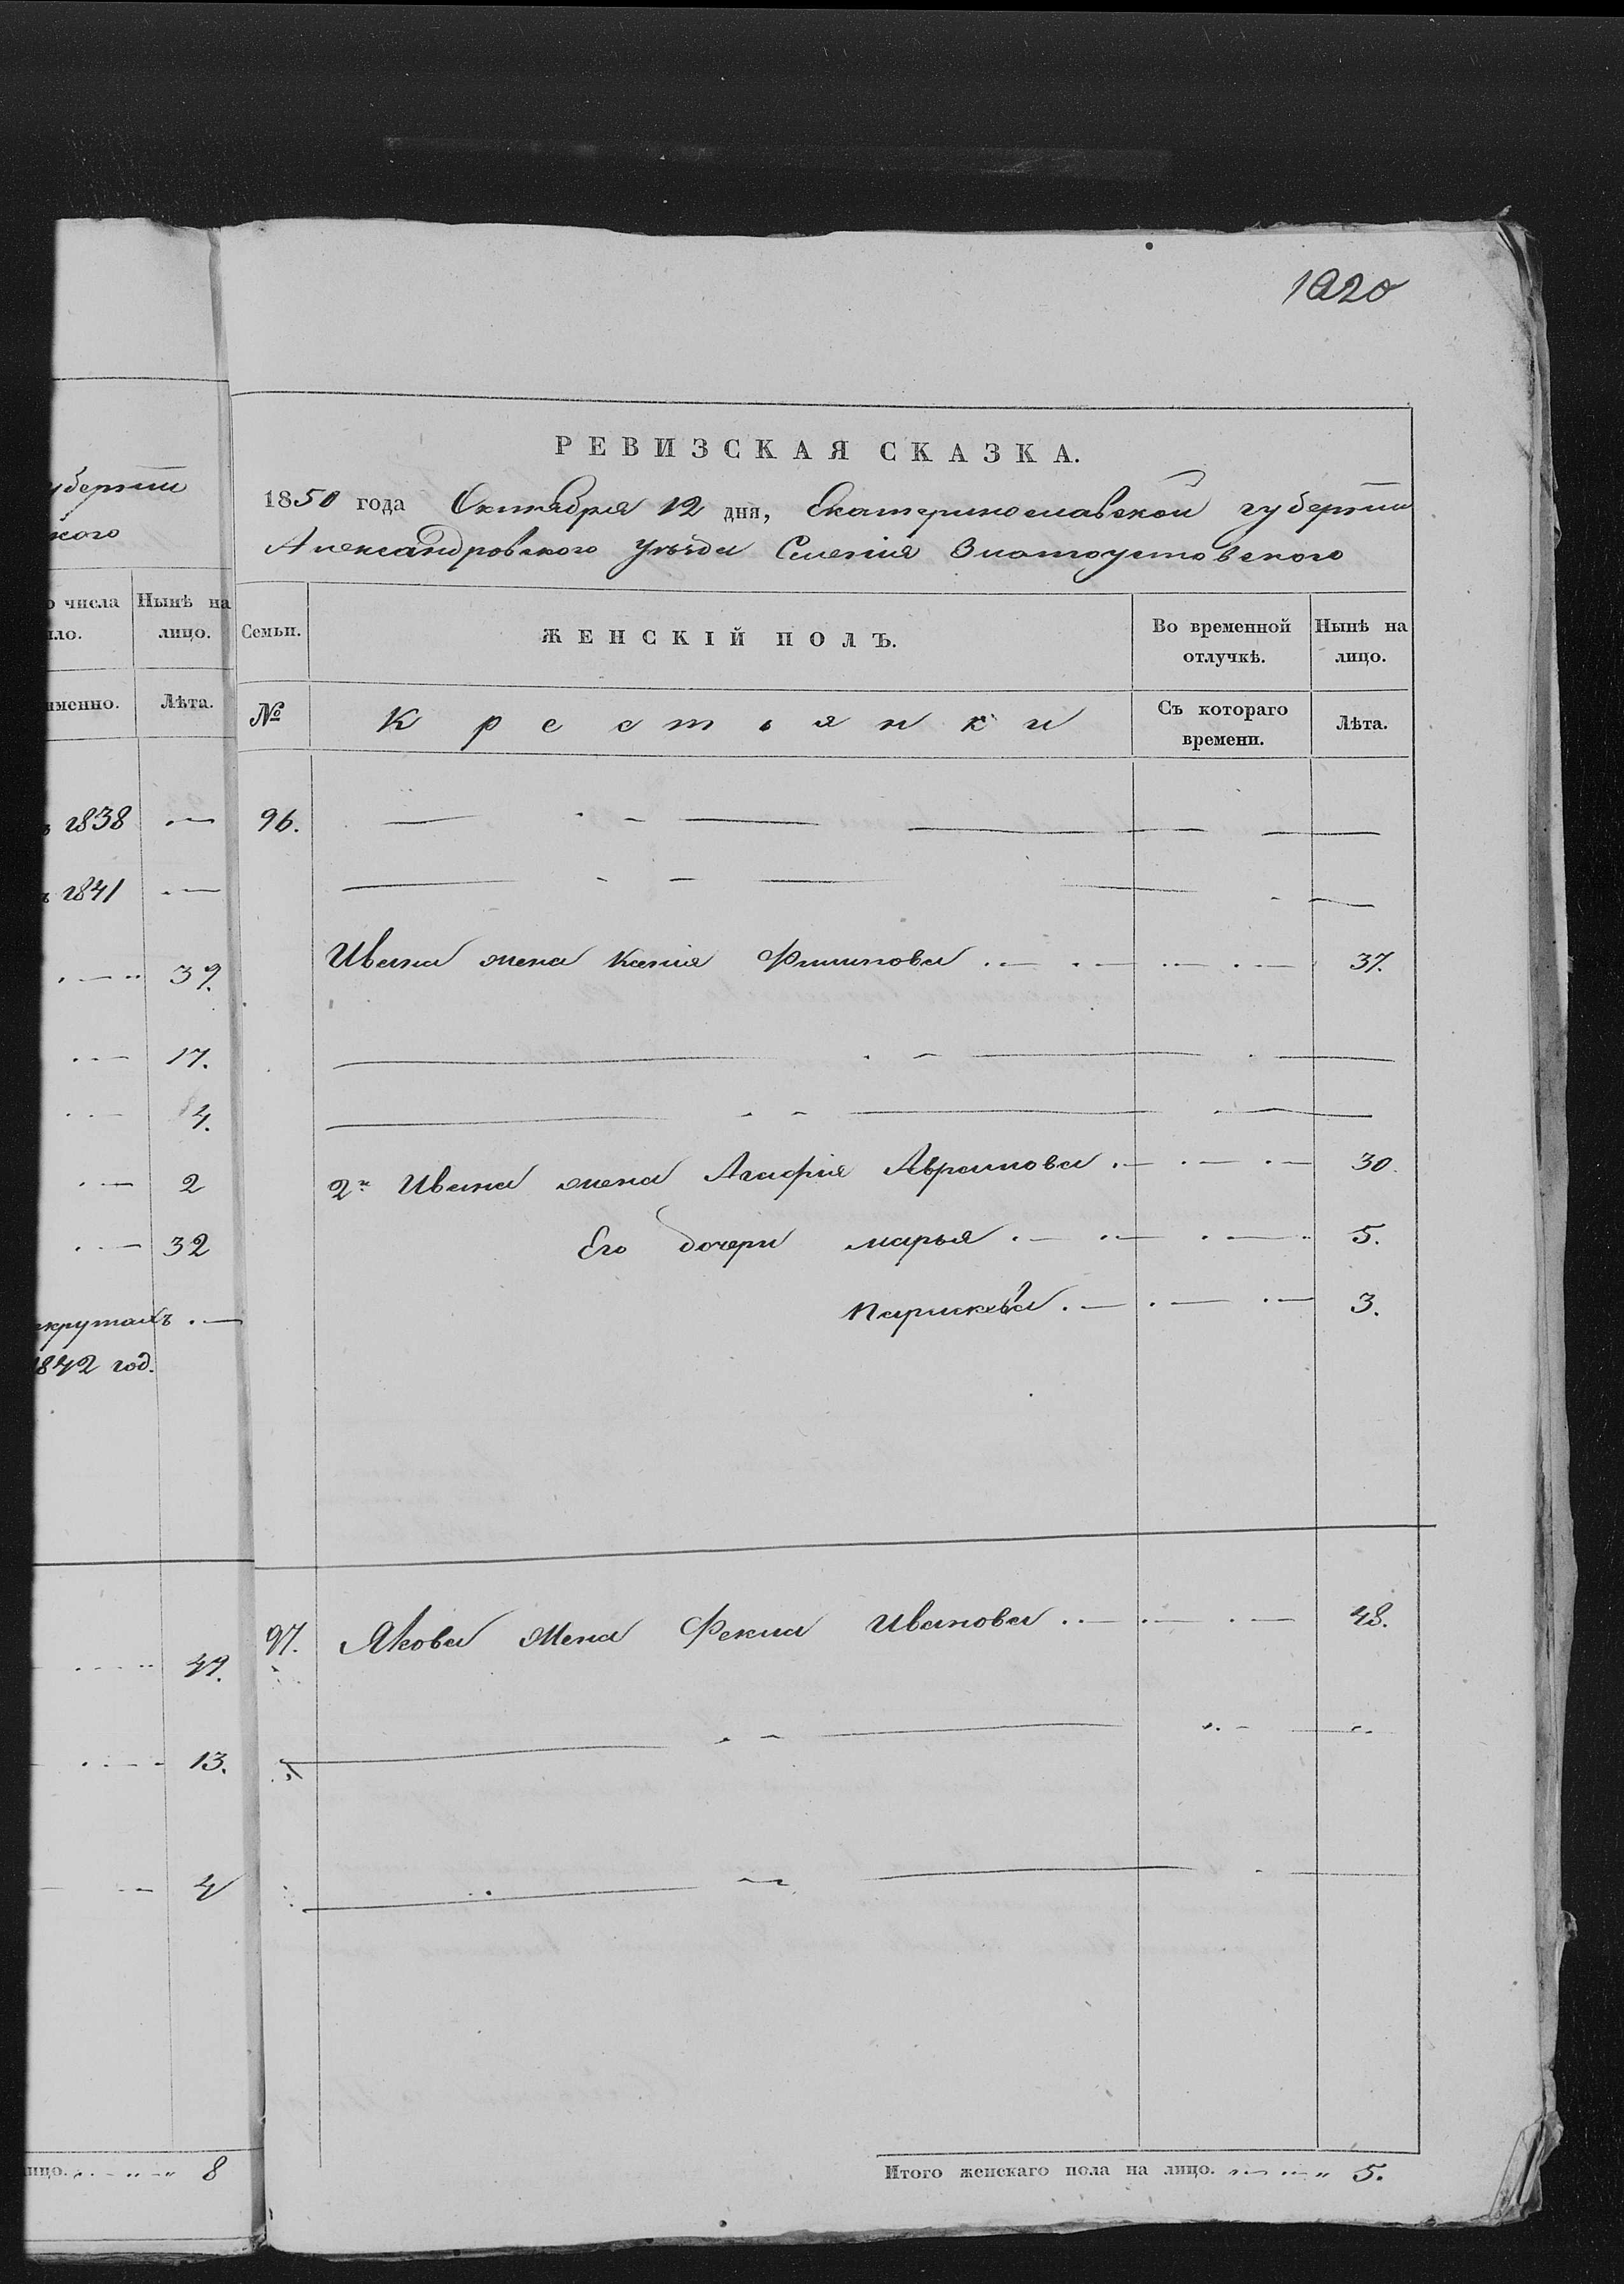 уберніи
кого
о числа Нынѣ на
ло. лицо.
именно. Лѣта.
1838
1841
39.
17.
4.
2
32
крутахъ
1842 год.
49.
13.
4
лицо. 8
1020
РЕВИЗСКАЯ СКАЗКА.
1850 года Октября 12 дня, Екатеринославской губерніи
Александровского уѣзда Селенія Златоустовского
Семьи. ЖЕНСКІЙ ПОЛЪ. Во временной отлучкѣ. Нынѣ на лицо.
№ Крестьянки Съ котораго времени. Лѣта.
96.
Ивана жена Ксенія Филипова 37.
2й Ивана жена Агафія Аврамова 30.
Его дочери марья 5.
Парискева 3.
97. Якова жена Фекла Иванова 48.
Итого женскаго пола на лицо. 5.